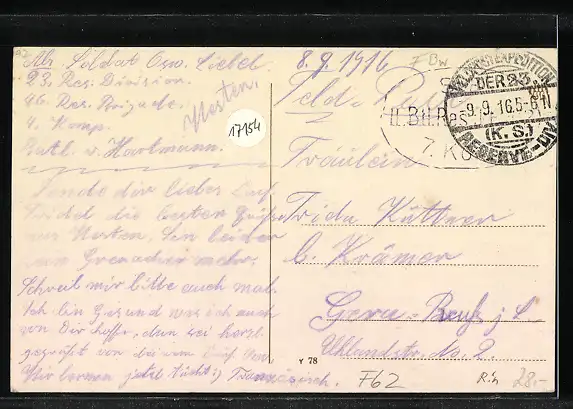 Abs. Soldat Osw. Liebel
23. Res. Division
46. Res. Brigade
4. Komp.
Batl. v. Hartmann.
Westen.
17154
Sende dir lieber
die besten Grüße
aus Westen, bin leider
kein Grenadier mehr.
Schreib mir bitte auch mal.
Ich bin Gesund was ich auch
von Dir hoffe, nun sei herzl.
gegrüßt von
Wir lernen jetzt tücht:) Französisch.
8.9.1916
FBw
Feld-Post
FELDPOSTEXPEDITION
DER 23.
9.9.16.5-6N
(K.S.)
RESERVE-DIV.
II. Btl. Res.
7. Ko
Fräulein
Frida Küttner
b. Krämer
Gera-Reuß j. L.
Uhlandstr. No. 2.
Y 78
F62
28.-